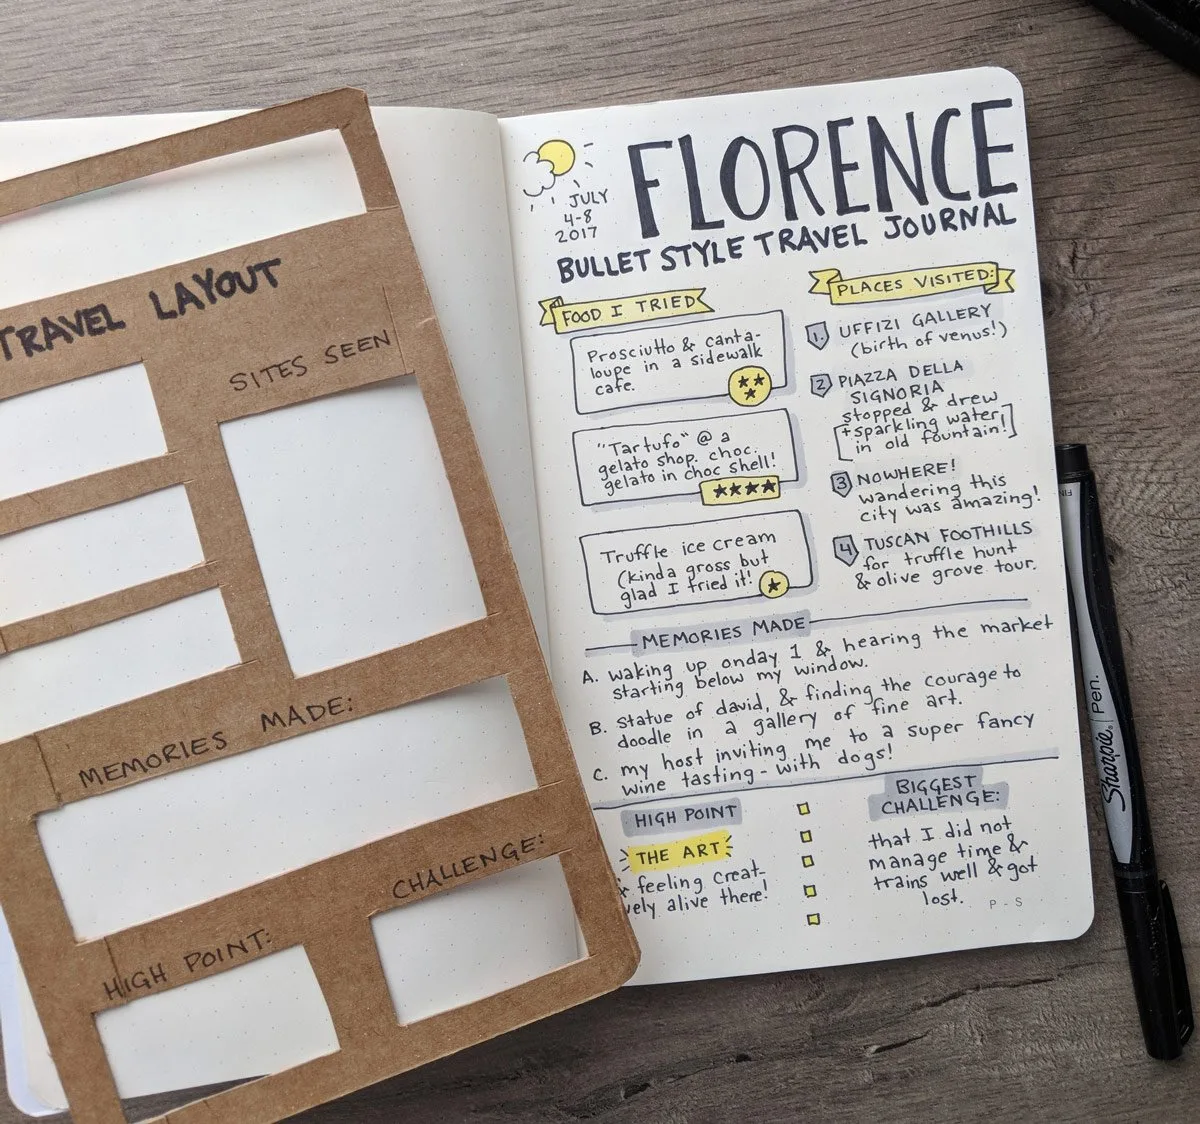 TRAVEL LAYOUT
SITES SEEN
MEMORIES MADE:
CHALLENGE:
HIGH POINT:
JULY
4-8
2017
FLORENCE
BULLET STYLE TRAVEL JOURNAL
FOOD I TRIED
Prosciutto & canta-
loupe in a sidewalk
cafe.
"Tartufo" @ a
gelato shop. choc.
gelato in choc shell!
Truffle ice cream
(kinda gross but
glad I tried it!
PLACES VISITED:
1. UFFIZI GALLERY
(birth of venus!)
2 PIAZZA DELLA
SIGNORIA
stopped & drew
+sparkling water
in old fountain!
3 NOWHERE!
wandering this
city was amazing!
4 TUSCAN FOOTHILLS
for truffle hunt
& olive grove tour.
MEMORIES MADE
A. waking up onday 1 & hearing the market
starting below my window.
B. statue of david, & finding the courage to
doodle in a gallery of fine art.
C. my host inviting me to a super fancy
wine tasting - with dogs!
HIGH POINT
THE ART
& feeling creat-
ively alive there!
BIGGEST
CHALLENGE:
that I did not
manage time &
trains well & got
lost.
P-S
Sharpie. Pen.